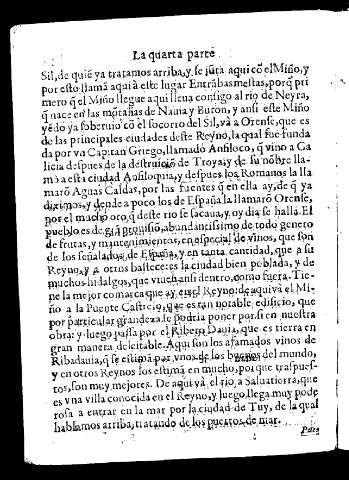 La quarta parte
Sil, de quiẽ ya tratamos arriba, y se jũta aqui cõ el Miño, y
por esto llamã aqui à este lugar Entrãbasmestas, porq̃ pri
mero q̃ el Miño llegue aqui lleua consigo al rio de Neyra,
q̃ nace en las mõtañas de Nauia y Buron, y ansi este Miño
yẽdo ya soberuio cõ el socorro del Sil, và à Orense, que es
de las principales ciudades deste Reyno, la qual fue funda
da por vn Capitan Griego, llamado Anfiloco, q̃ vino a Ga
licia despues de la destruiciõ de Troya, y de su nõbre lla-
mò a esta ciudad Anfiloquia, y despues los Romanos la lla
marõ Aguas Caldas, por las fuentes q̃ en ella ay, de q̃ ya
diximos, y dende a poco los de España la llamarõ Orense,
por el mucho oro, q̃ deste rio se sacaua, y oy dia se halla. El
pueblo es de grã prouisiõ, abundantissimo de todo genero
de frutas, y mantenimientos, en especial de vinos, que son
de los señalados de España, y en tanta cantidad, que a su
Reyno, y a otros bastece: es la ciudad bien poblada, y de
muchos hidalgos, que viuen ansi dentro, como fuera. Tie-
ne la mejor comarca que ay en el Reyno: de aqui và el Mi-
ño a la Puente Castrelo, que es tan notable edificio, que
por particular grandeza se podria poner por si en nuestra
obra: y luego passa por el Ribero Dauia, que es tierra en
gran manera deleitable. Aqui son los afamados vinos de
Ribadauia, q̃ se estimã por vnos de los buenos del mundo,
y en otros Reynos los estimã en mucho, por que traspues-
tos, son muy mejores. De aqui và el rio, a Saluatierra, que
es vna villa conocida en el Reyno, y luego llega muy pode
rosa a entrar en la mar por la ciudad de Tuy, de la qual
hablamos arriba, tratando de los puertos de mar.
Para